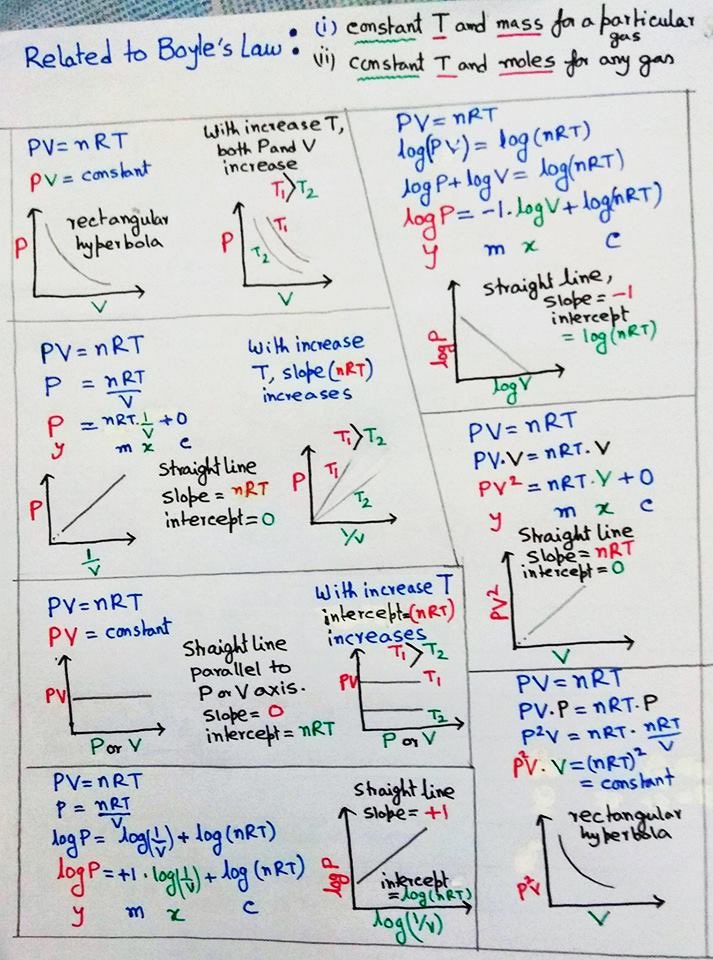 Related to Boyle's Law :
(i) constant T and mass for a particular gas
(ii) constant T and moles for any gas
PV = nRT
PV = constant
rectangular
hyperbola
P
V
With increase T,
both P and V
increase
T₁>T₂
P
T₁
T₂
V
PV = nRT
log(PV) = log(nRT)
log P + log V = log(nRT)
log P = -1. log V + log(nRT)
y m x c
straight line,
slope = -1
intercept
= log(nRT)
log P
log V
PV = nRT
P = nRT/V
P = nRT. 1/V + 0
y m x c
Straight line
slope = nRT
intercept = 0
P
1/V
With increase
T, slope (nRT)
increases
T₁>T₂
P
T₁
T₂
1/V
PV = nRT
PV.V = nRT. V
PV² = nRT. V + 0
y m x c
Straight line
Slope = nRT
intercept = 0
PV²
V
PV = nRT
PV = constant
PV
P or V
Straight line
parallel to
P or V axis.
slope = 0
intercept = nRT
With increase T
intercept=(nRT)
increases
T₁>T₂
PV
T₁
T₂
P or V
PV = nRT
PV.P = nRT. P
P²V = nRT. nRT/V
P²V. V = (nRT)²
= constant
rectangular
hyperbola
P²V
V
PV = nRT
P = nRT/V
log P = log(1/V) + log(nRT)
log P = +1 . log(1/V) + log (nRT)
y m x c
Straight line
slope = +1
intercept
= log(nRT)
log P
log(1/V)